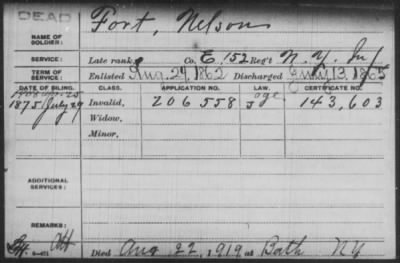 DEAD
NAME OF SOLDIER: Fort, Nelson
SERVICE: Late rank, Co. E, 152 Reg't N.Y. Inf
TERM OF SERVICE: Enlisted Aug. 29, 1862 Discharged July 13, 1865
DATE OF FILING. CLASS. APPLICATION NO. LAW. CERTIFICATE NO.
age
1875 July 29 Invalid, 206 558 143,603
Widow,
Minor,
ADDITIONAL SERVICES:
REMARKS:
Died Aug 22, 1919 at Bath NY